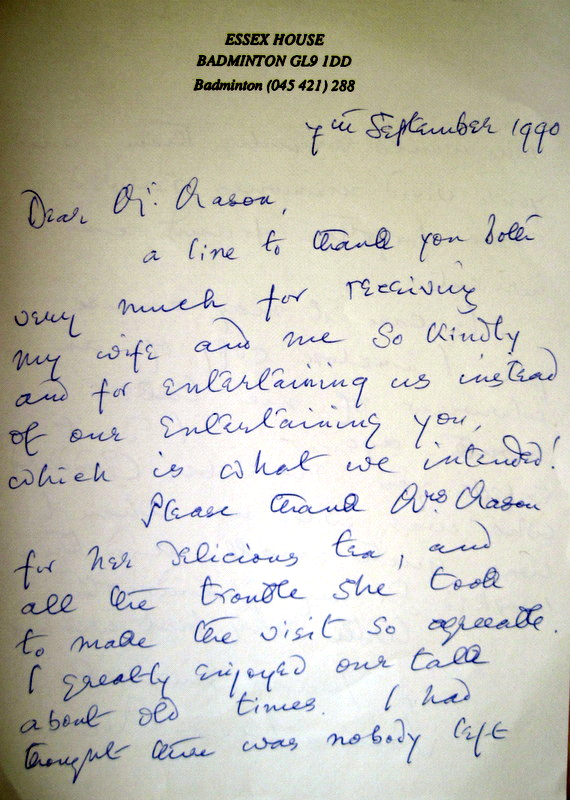 ESSEX HOUSE
BADMINTON GL9 1DD
Badminton (045 421) 288
7th September 1990
Dear Mr. Mason,
a line to thank you both
very much for receiving
my wife and me so kindly
and for entertaining us instead
of our entertaining you,
which is what we intended!
Please thank Mrs Mason
for her delicious tea, and
all the trouble she took
to make the visit so agreeable.
I greatly enjoyed our talk
about old times. I had
thought there was nobody left